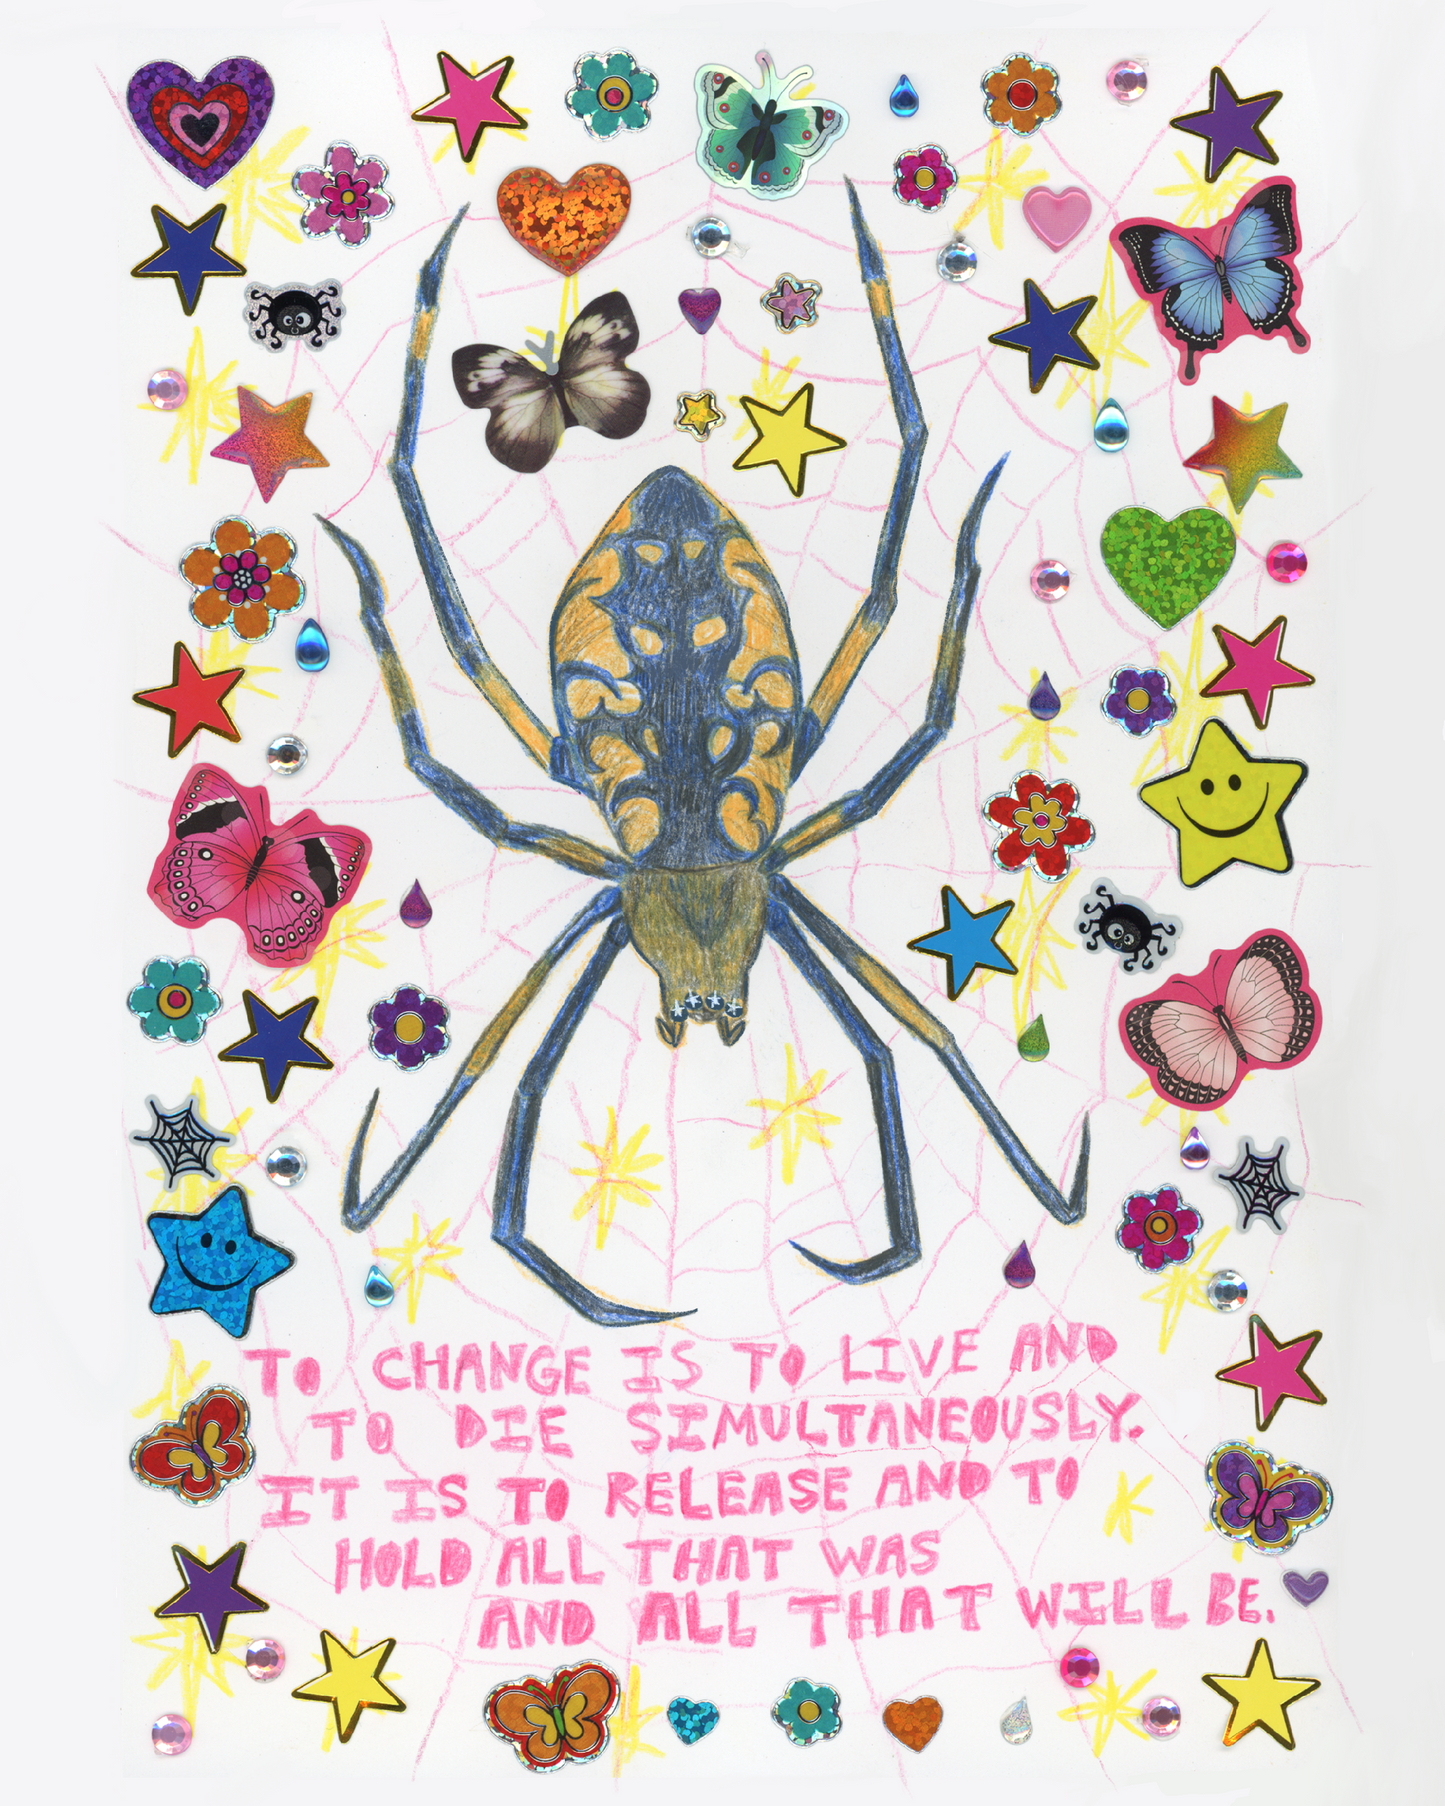 TO CHANGE IS TO LIVE AND
TO DIE SIMULTANEOUSLY.
IT IS TO RELEASE AND TO
HOLD ALL THAT WAS
AND ALL THAT WILL BE.